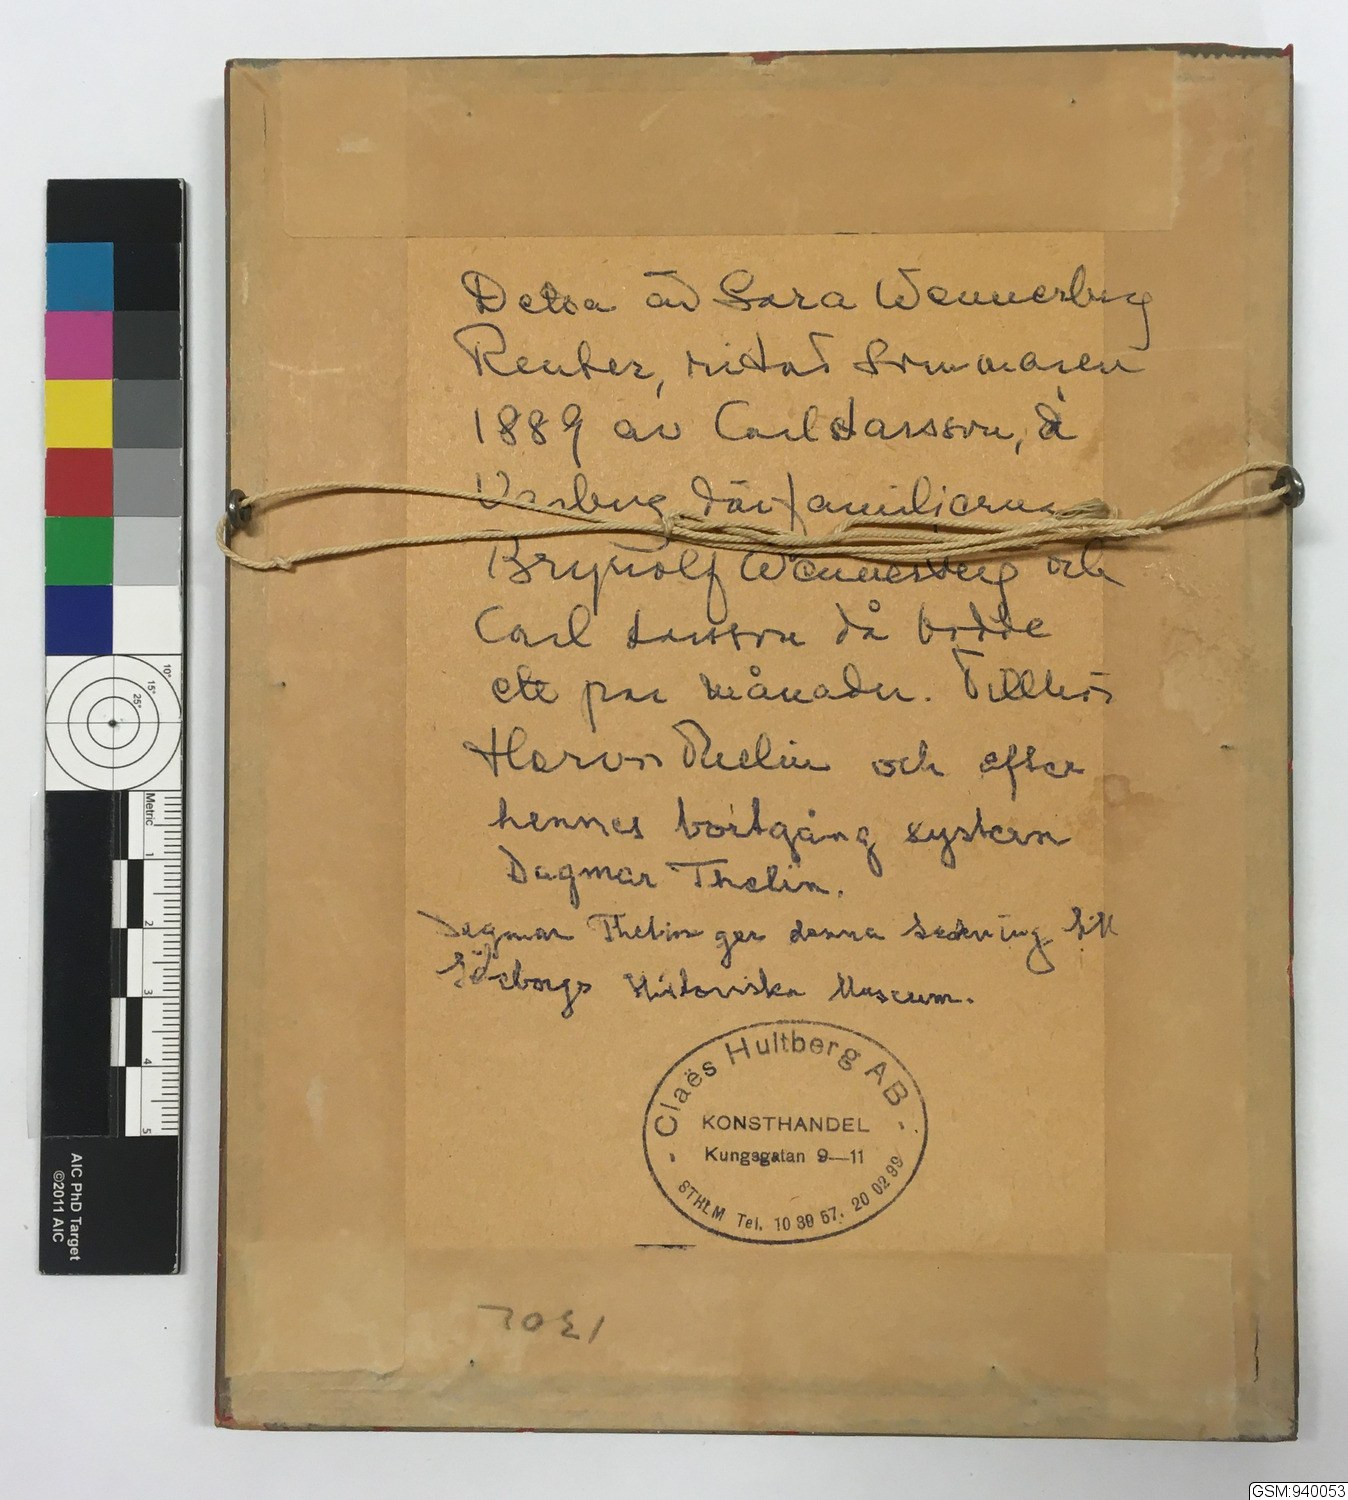 Detta är Sara Wennerberg
Reuter, ritad sommaren
1889 av Carl Larsson, i
Varberg där familjerna
Brynolf Wennerberg och
Carl Larsson då bodde
ett par månader. Tillhör
Thelin och efter
hennes bortgång systern
Dagmar Thelin.
Dagmar Thelin ger denna teckning till
Göteborgs Historiska Museum.
- Claës Hultberg AB -
KONSTHANDEL
Kungsgatan 9—11
STHLM Tel. 10 39 57. 20 02 99
1302
10°
15°
25°
Metric
1
2
3
4
5
AIC PhD Target
©2011 AIC
GSM:940053